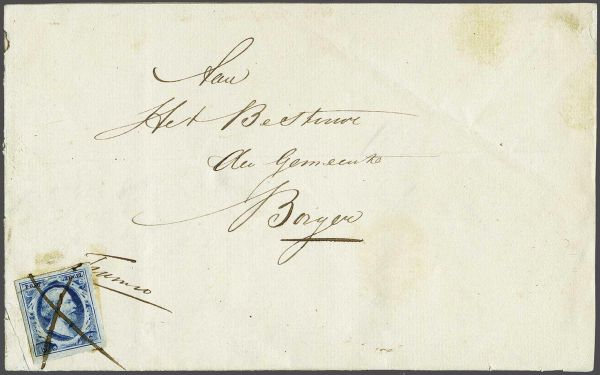 Aan
Het Bestuur
der Gemeente
Borger
Franco